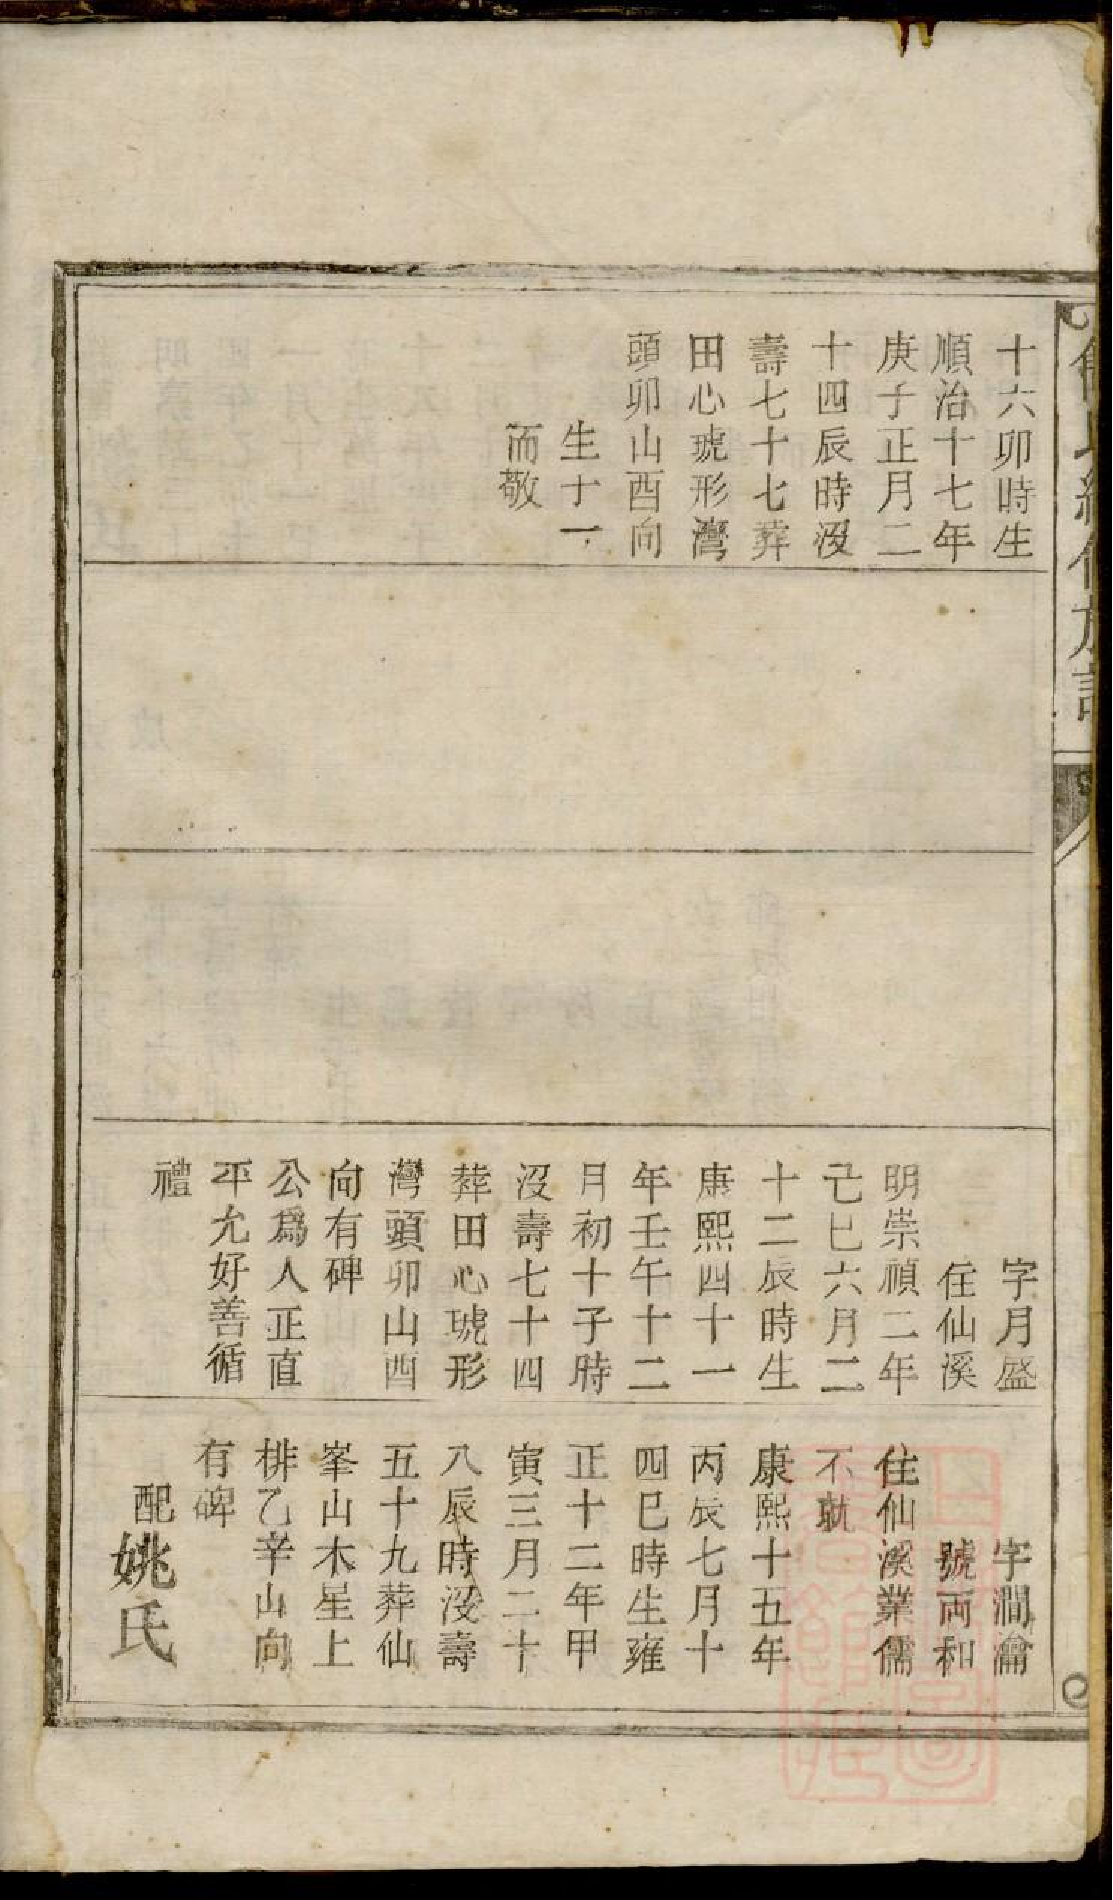 十六卯時生
順治十七年
庚子正月二
十四辰時沒
壽七十七葬
田心琥形灣
頭卯山酉向
生十一
而敬
字月盛
住仙溪
明崇禎二年
己巳六月二
十二辰時生
康熙四十一
年壬午十二
月初十子時
沒壽七十四
葬田心琥形
灣頭卯山酉
向有碑
公爲人正直
平允好善循
禮
字澗瀹
號両和
住仙溪業儒
不就
康熙十五年
丙辰七月十
四巳時生雍
正十二年甲
寅三月二十
八辰時沒壽
五十九葬仙
峯山木星上
排乙辛山向
有碑
配姚氏